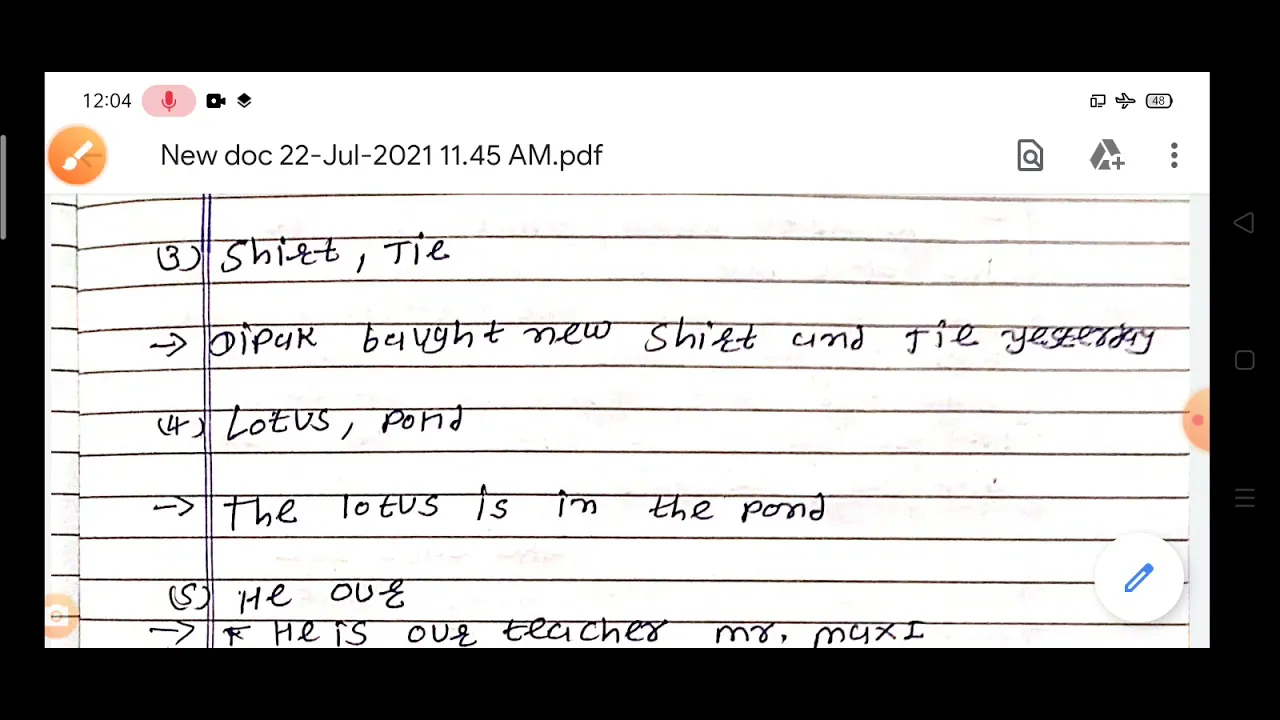 12:04 48
New doc 22-Jul-2021 11.45 AM.pdf
(3) Shirt, Tie
→ Dipak baught new Shirt and Tie yesterday
(4) Lotus, pond
→ The lotus is in the pond
(5) He our
→ * He is our teacher mr. maxI